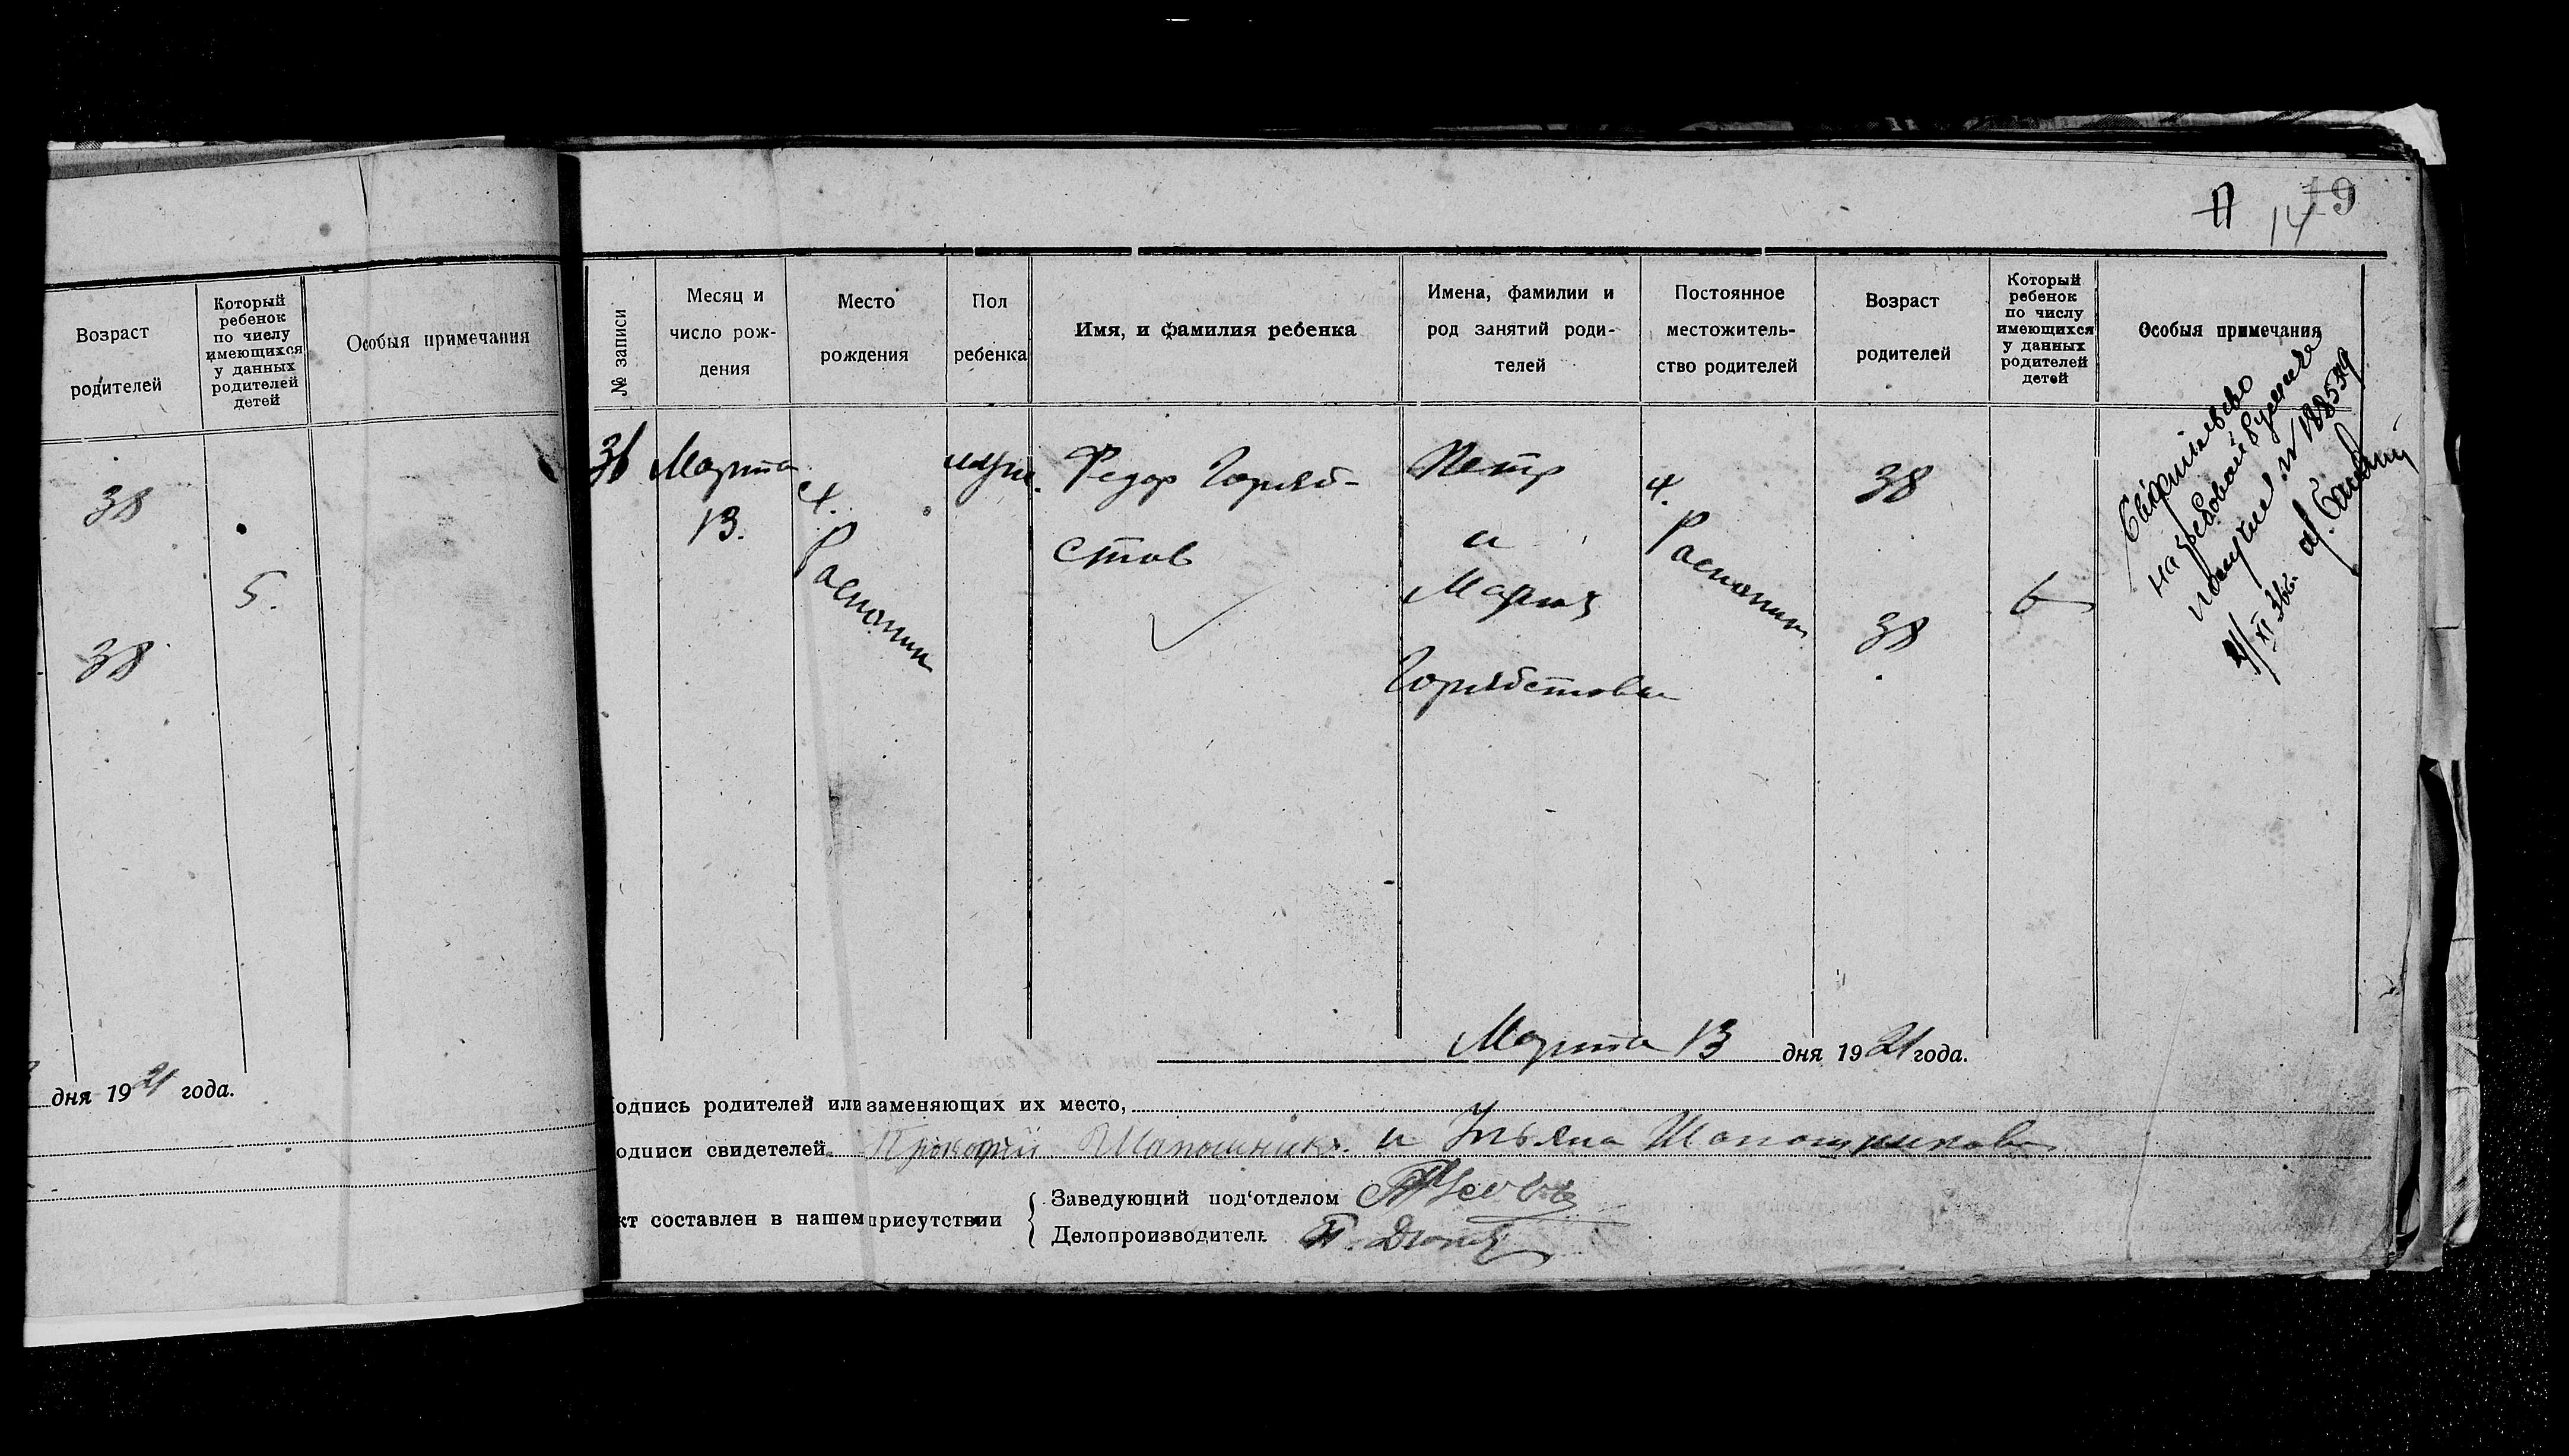 11 14 19
Возраст
родителей
Который
ребенок
по числу
имеющихся
у данных
родителей
детей
Особыя примечания
38
5.
38
дня 1921 года.
№ записи
Месяц и
число рож-
дения
Место
рождения
Пол
ребенка
Имя, и фамилия ребенка
Имена, фамилии и
род занятий роди-
телей
Постоянное
местожитель-
ство родителей
Возраст
родителей
Который
ребенок
по числу
имеющихся
у данных
родителей
детей
Особыя примечания
Марта
13.
муж.
Федор
стов
Петр
и
Мария
38
38
6
на
Марта 13 дня 1921 года.
одпись родителей или заменяющих их место,
одписи свидетелей Прокофий Шапошник. и Ульяна Шапошникова
кт составлен в нашем присутствии
Заведующий под'отделом
Делопроизводитель